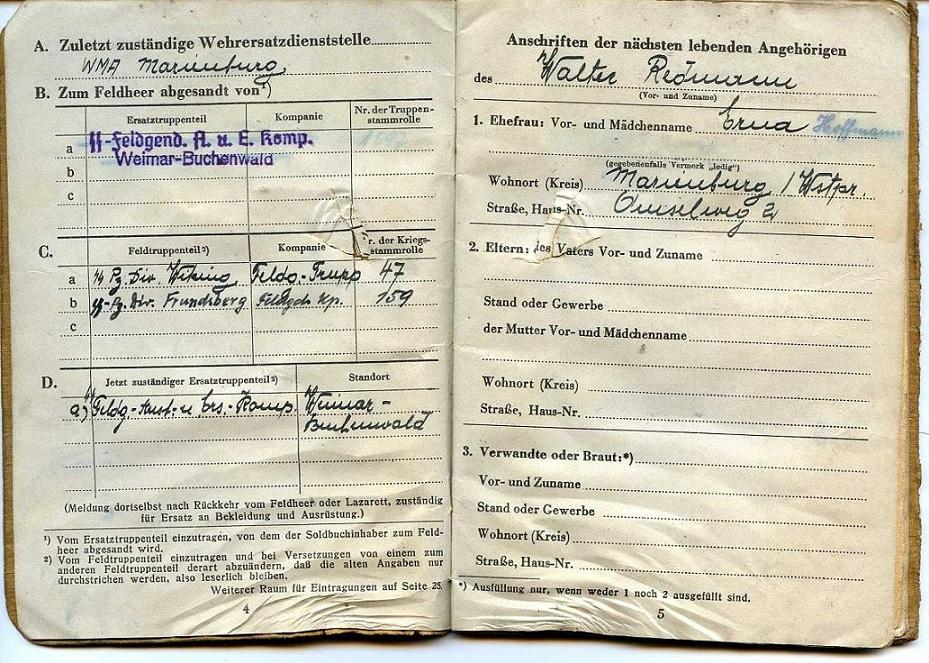 A. Zuletzt zuständige Wehrersatzdienststelle
WMA Marienburg
B. Zum Feldheer abgesandt von¹)
Ersatztruppenteil
Kompanie
Nr. der Truppen-
stammrolle
a ᛋᛋ-Feldgend. A. u. E. Komp.
Weimar-Buchenwald
b
c
C.
Feldtruppenteil²)
Kompanie
r. der Kriegs-
stammrolle
a ᛋᛋ Pz. Div. Wiking Feldg.-Trupp 47
b ᛋᛋ-Pz. Div. Frundsberg Kp. 159
c
D.
Jetzt zuständiger Ersatztruppenteil²)
Standort
a) ᛋᛋ Feldg.-Ausb.-u. Ers.-Komp. Weimar-
Buchenwald
(Meldung dortselbst nach Rückkehr vom Feldheer oder Lazarett, zuständig
für Ersatz an Bekleidung und Ausrüstung.)
¹) Vom Ersatztruppenteil einzutragen, von dem der Soldbuchinhaber zum Feld-
heer abgesandt wird.
²) Vom Feldtruppenteil einzutragen und bei Versetzungen von einem zum
anderen Feldtruppenteil derart abzuändern, daß die alten Angaben nur
durchstrichen werden, also leserlich bleiben.
Weiterer Raum für Eintragungen auf Seite 25.
4
Anschriften der nächsten lebenden Angehörigen
des Walter Redmann
(Vor- und Zuname)
1. Ehefrau: Vor- und Mädchenname Erna Hoffmann
(gegebenenfalls Vermerk „ledig“)
Wohnort (Kreis) Marienburg / Westpr.
Straße, Haus-Nr. Amselweg 2
2. Eltern: des Vaters Vor- und Zuname
Stand oder Gewerbe
der Mutter Vor- und Mädchenname
Wohnort (Kreis)
Straße, Haus-Nr.
3. Verwandte oder Braut:*)
Vor- und Zuname
Stand oder Gewerbe
Wohnort (Kreis)
Straße, Haus-Nr.
*) Ausfüllung nur, wenn weder 1 noch 2 ausgefüllt sind.
5